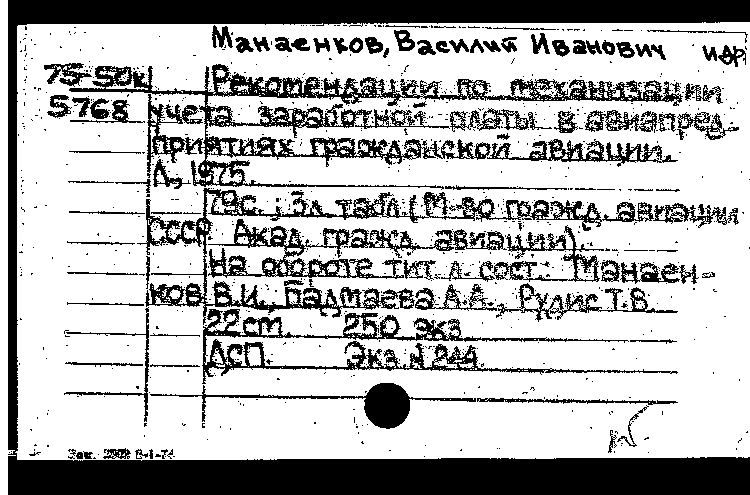 Манаенков, Василий Иванович и др
75-50к Рекомендации по механизации
5768 учета заработной платы в авиапред-
приятиях гражданской авиации.
Л., 1975.
79с. ; 3л. табл. (М-во гражд. авиации
СССР. Акад. гражд. авиации).
На обороте тит. л. сост.: Манаен-
ков В.И., Балмаева А.А., Рудис Т.В.
22см. 250 экз.
ДСП. Экз. № 244.
Зак. 2909 8-1-74